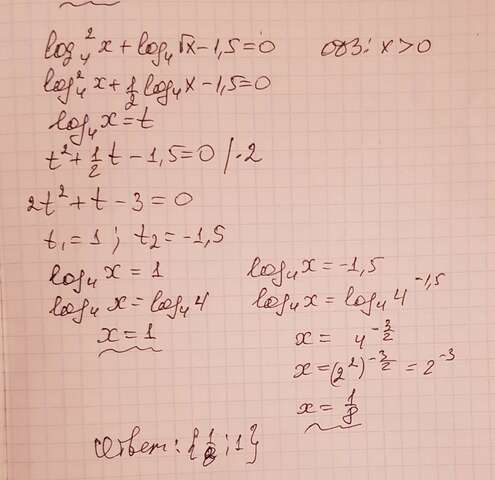 log₄²x + log₄√x − 1,5 = 0 ОДЗ: x > 0
log₄²x + 1/2 log₄x − 1,5 = 0
log₄x = t
t² + 1/2 t − 1,5 = 0 /·2
2t² + t − 3 = 0
t₁ = 1 ; t₂ = −1,5
log₄x = 1 log₄x = −1,5
log₄x = log₄4 log₄x = log₄4^(−1,5)
x = 1 x = 4^(−3/2)
x = (2²)^(−3/2) = 2^(−3)
x = 1/8
Ответ: {1/8 ; 1}